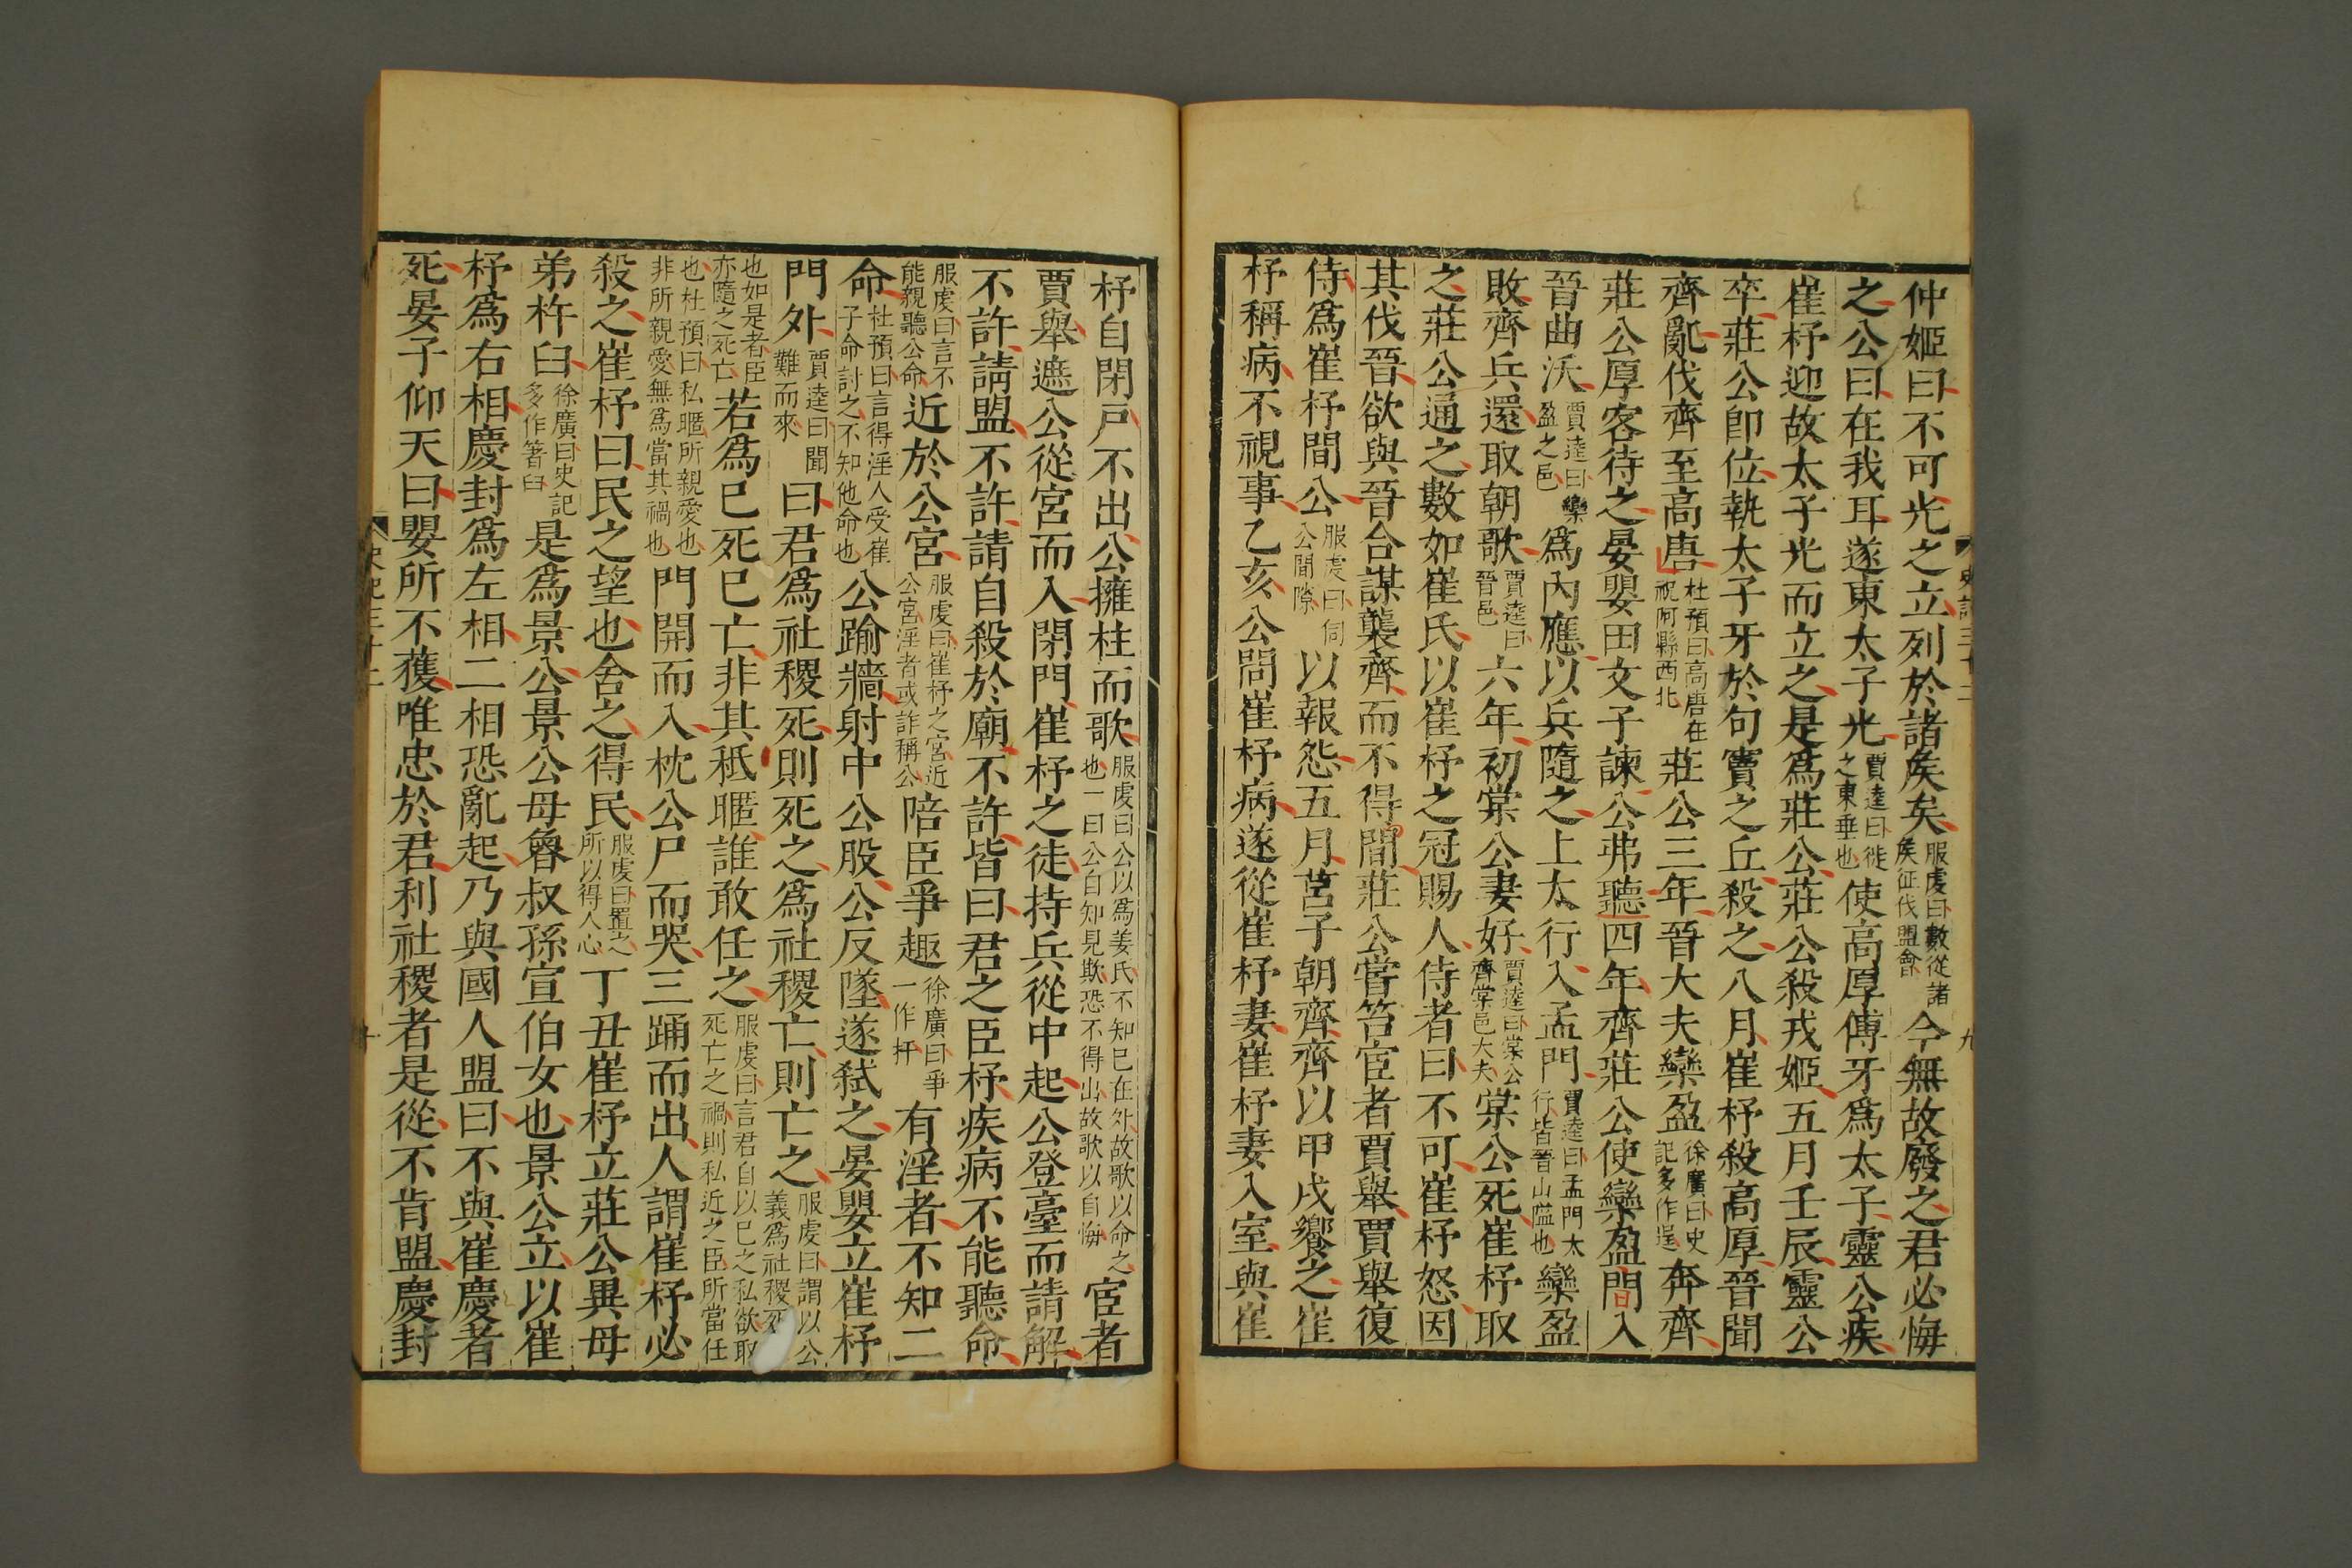 仲姬曰不可光之立列於諸矦矣服虔曰數從諸矦征伐盟會今無故廢之君必悔
之公曰在我耳遂東太子光賈逵曰徙之東垂也使高厚傅牙爲太子靈公疾
崔杼迎故太子光而立之是爲莊公莊公殺戎姬五月壬辰靈公
卒莊公卽位執太子牙於句竇之丘殺之八月崔杼殺高厚晉聞
齊亂伐齊至高唐杜預曰高唐在祝阿縣西北莊公三年晉大夫欒盈徐廣曰史記多作逞奔齊
莊公厚客待之晏嬰田文子諫公弗聽四年齊莊公使欒盈間入
晉曲沃賈逵曰欒盈之邑爲內應以兵隨之上太行入孟門賈逵曰孟門太行皆晉山隘也欒盈
敗齊兵還取朝歌賈逵曰晉邑六年初棠公妻好賈逵曰棠公齊棠邑大夫棠公死崔杼取
之莊公通之數如崔氏以崔杼之冠賜人侍者曰不可崔杼怒因
其伐晉欲與晉合謀襲齊而不得間莊公嘗笞宦者賈舉賈舉復
侍爲崔杼間公服虔曰伺公間隙以報怨五月莒子朝齊齊以甲戌饗之崔
杼稱病不視事乙亥公問崔杼病遂從崔杼妻崔杼妻入室與崔
杼自閉戸不出公擁柱而歌服虔曰公以爲姜氏不知已在外故歌以命之也一曰公自知見欺恐不得出故歌以自悔宦者
賈舉遮公從宮而入閉門崔杼之徒持兵從中起公登臺而請解
不許請盟不許請自殺於廟不許皆曰君之臣杼疾病不能聽命
服虔曰言不能親聽公命近於公宮服虔曰崔杼之宮近公宮淫者或詐稱公陪臣爭趣徐廣曰爭一作扞有淫者不知二
命杜預曰言得淫人受崔子命討之不知他命也公踰牆射中公股公反墜遂弑之晏嬰立崔杼
門外賈逵曰聞難而來曰君爲社稷死則死之爲社稷亡則亡之服虔曰謂以公義爲社稷死
也如是者臣亦隨之死亡若爲已死已亡非其秖暱誰敢任之服虔曰言君自以已之私欲取死亡之禍則私近之臣所當任
也杜預曰私暱所親愛也非所親愛無爲當其禍也門開而入枕公尸而哭三踊而出人謂崔杼必
殺之崔杼曰民之望也舍之得民服虔曰置之所以得人心丁丑崔杼立莊公異母
弟杵臼徐廣曰史記多作箸臼是爲景公景公母魯叔孫宣伯女也景公立以崔
杼爲右相慶封爲左相二相恐亂起乃與國人盟曰不與崔慶者
死晏子仰天曰嬰所不獲唯忠於君利社稷者是從不肯盟慶封